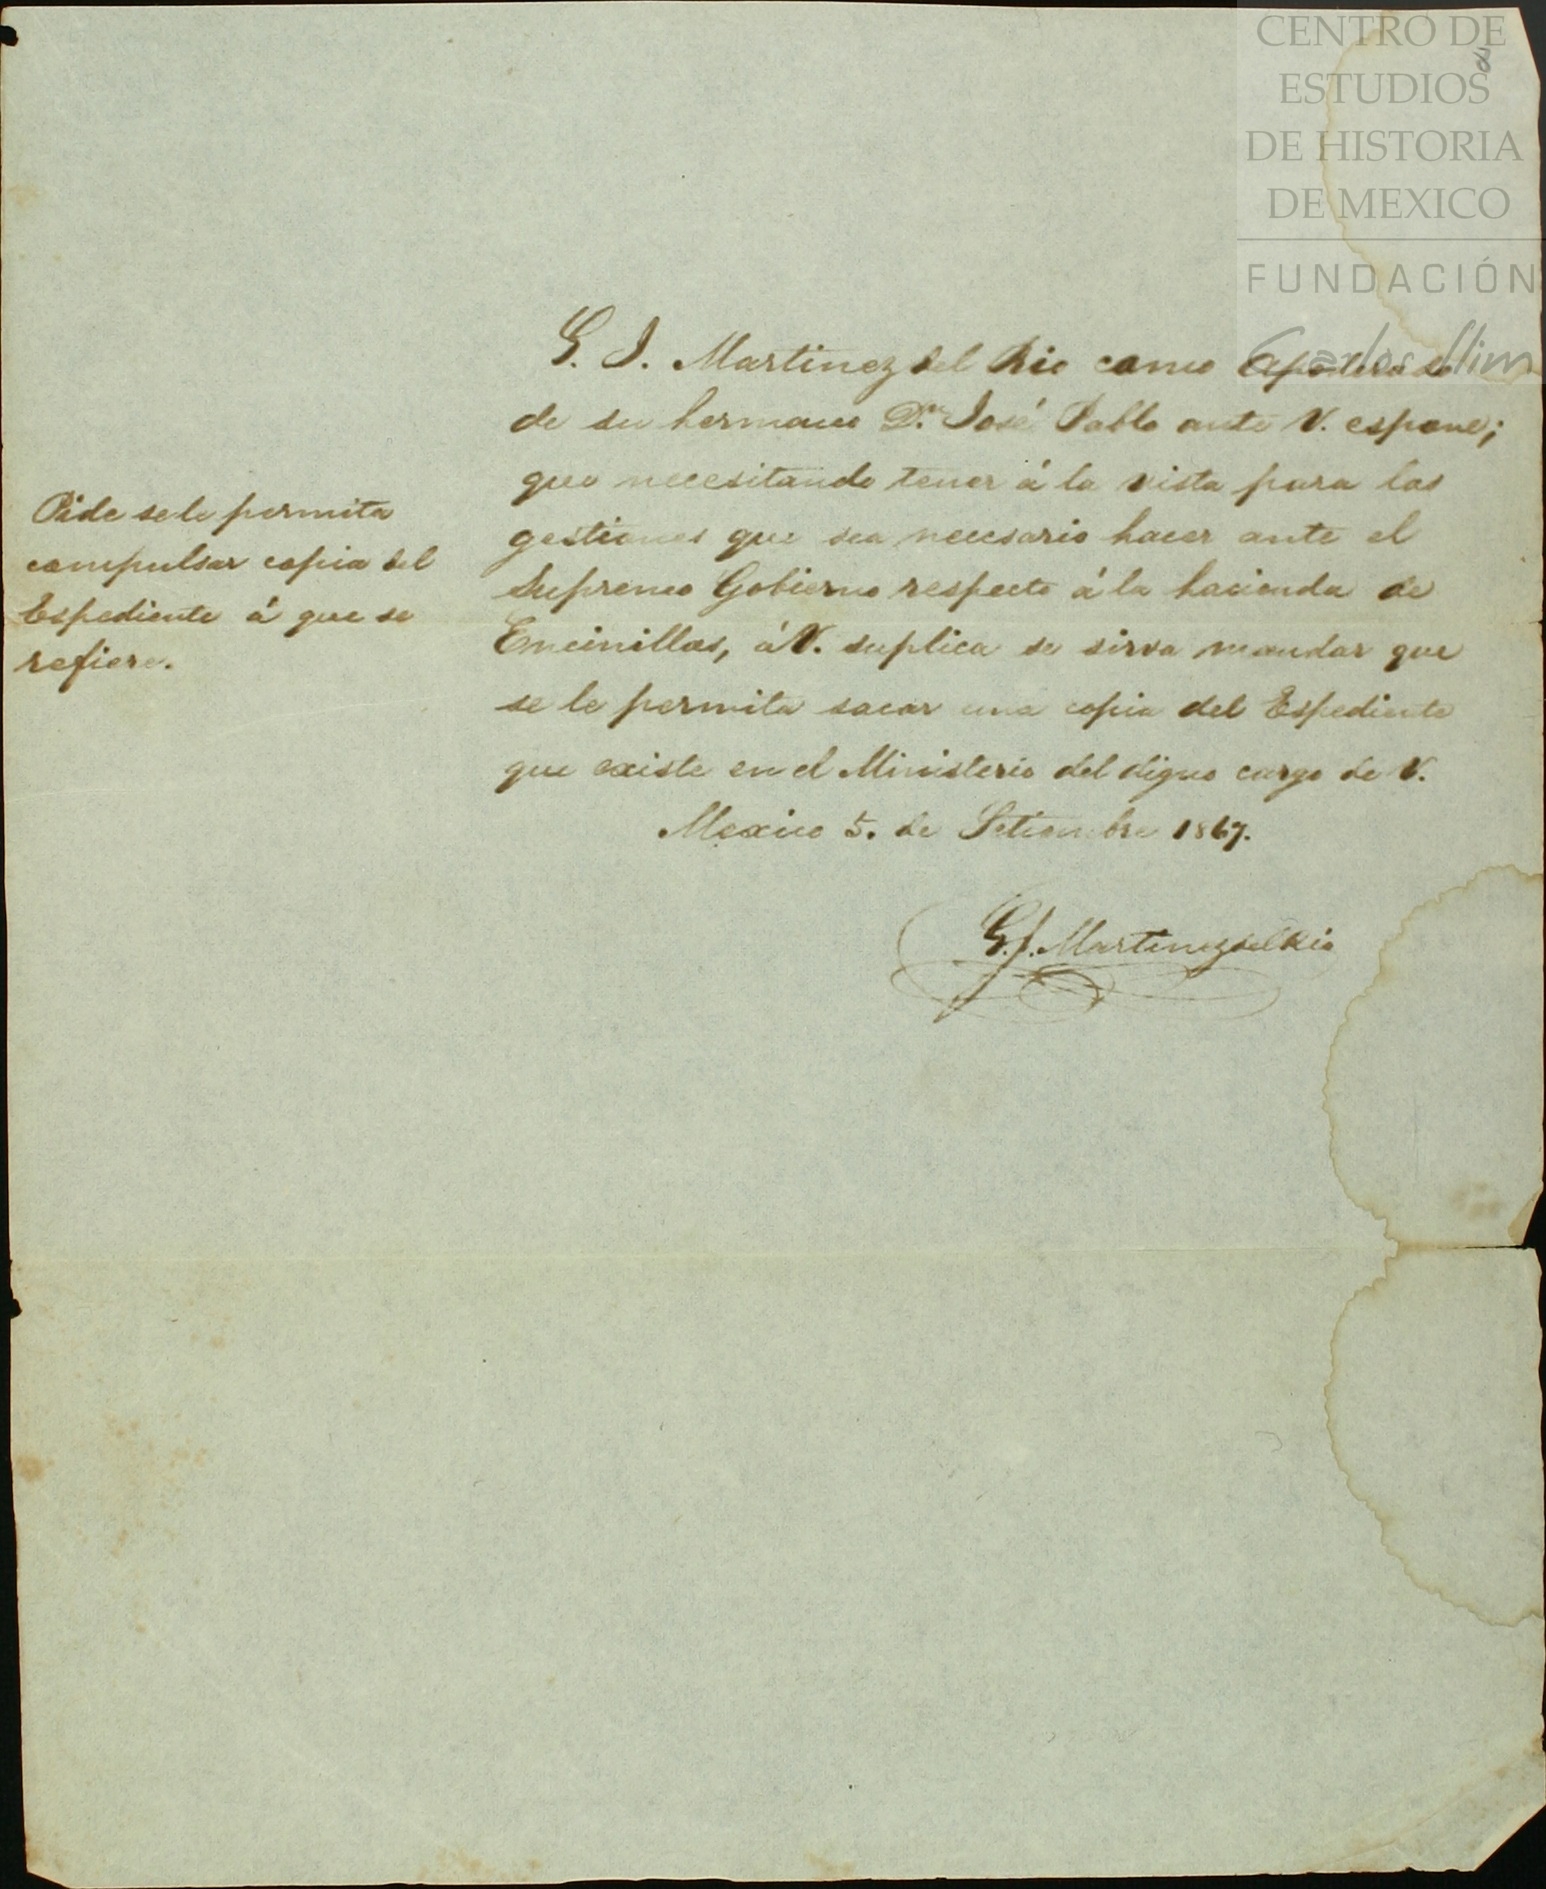 CENTRO DE
ESTUDIOS
DE HISTORIA
DE MEXICO
FUNDACIÓN
Carlos Slim
G. J. Martinez del Rio como Apoderado
de su hermano D.n José Pablo ante V. espone;
que necesitando tener á la vista para las
gestiones que sea necesario hacer ante el
Supremo Gobierno respecto á la hacienda de
Encinillas, á V. suplica se sirva mandar que
se le permita sacar una copia del Espediente
que existe en el Ministerio del digno cargo de V.
Mexico 5. de Setiembre 1867.
G. J. Martinez del Rio
Pide se le permita
compulsar copia del
Espediente á que se
refiere.